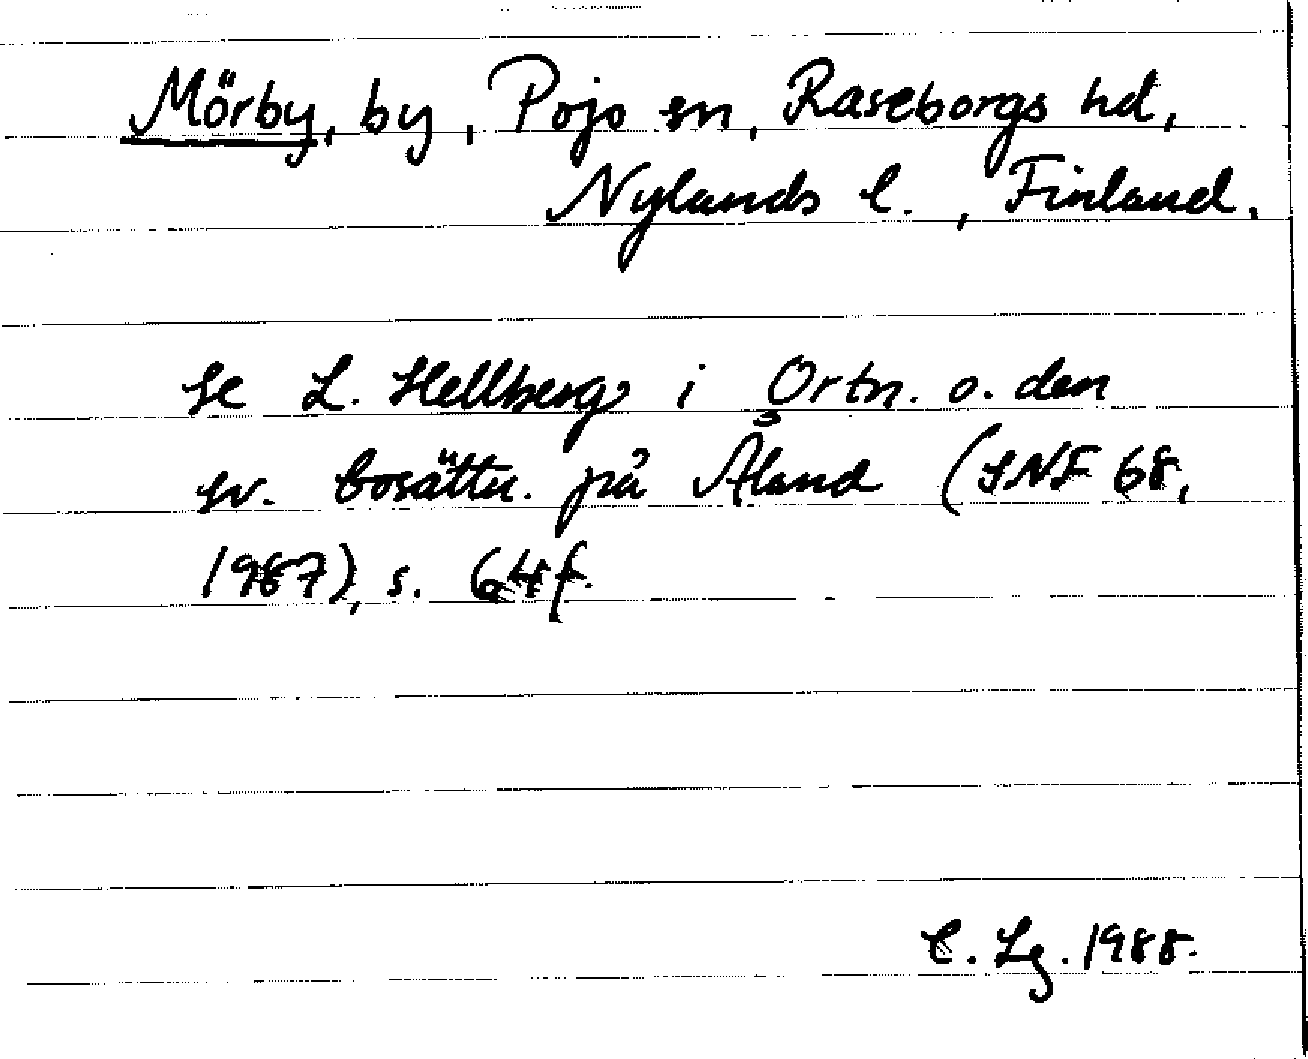 Mörby, by, Pojo sn, Raseborgs hd,
Nylands l., Finland.
Se L. Hellberg i Ortn. o. den
sv. bosättn. på Åland (SNF 68,
1987), s. 64 f.
C. Lg. 1988.